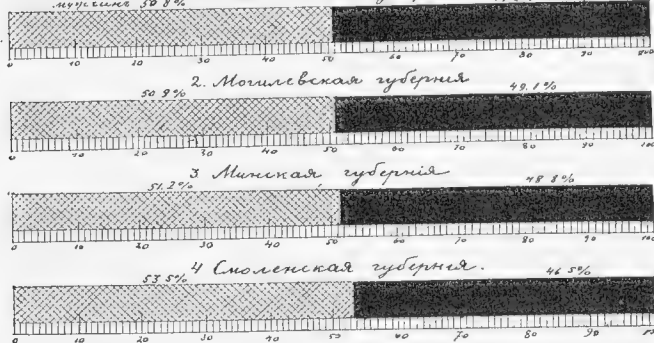 мужчинъ 50 8%
0 10 20 30 40 50 60 70 80 90 100
2. Могилевская губернія
50 9% 49.1%
0 10 20 30 40 50 60 70 80 90 100
3 Минская губернія
51.2% 48 8%
0 10 20 30 40 50 60 70 80 90 100
4 Смоленская губернія.
53.5% 46 5%
0 10 20 30 40 50 60 70 80 90 100